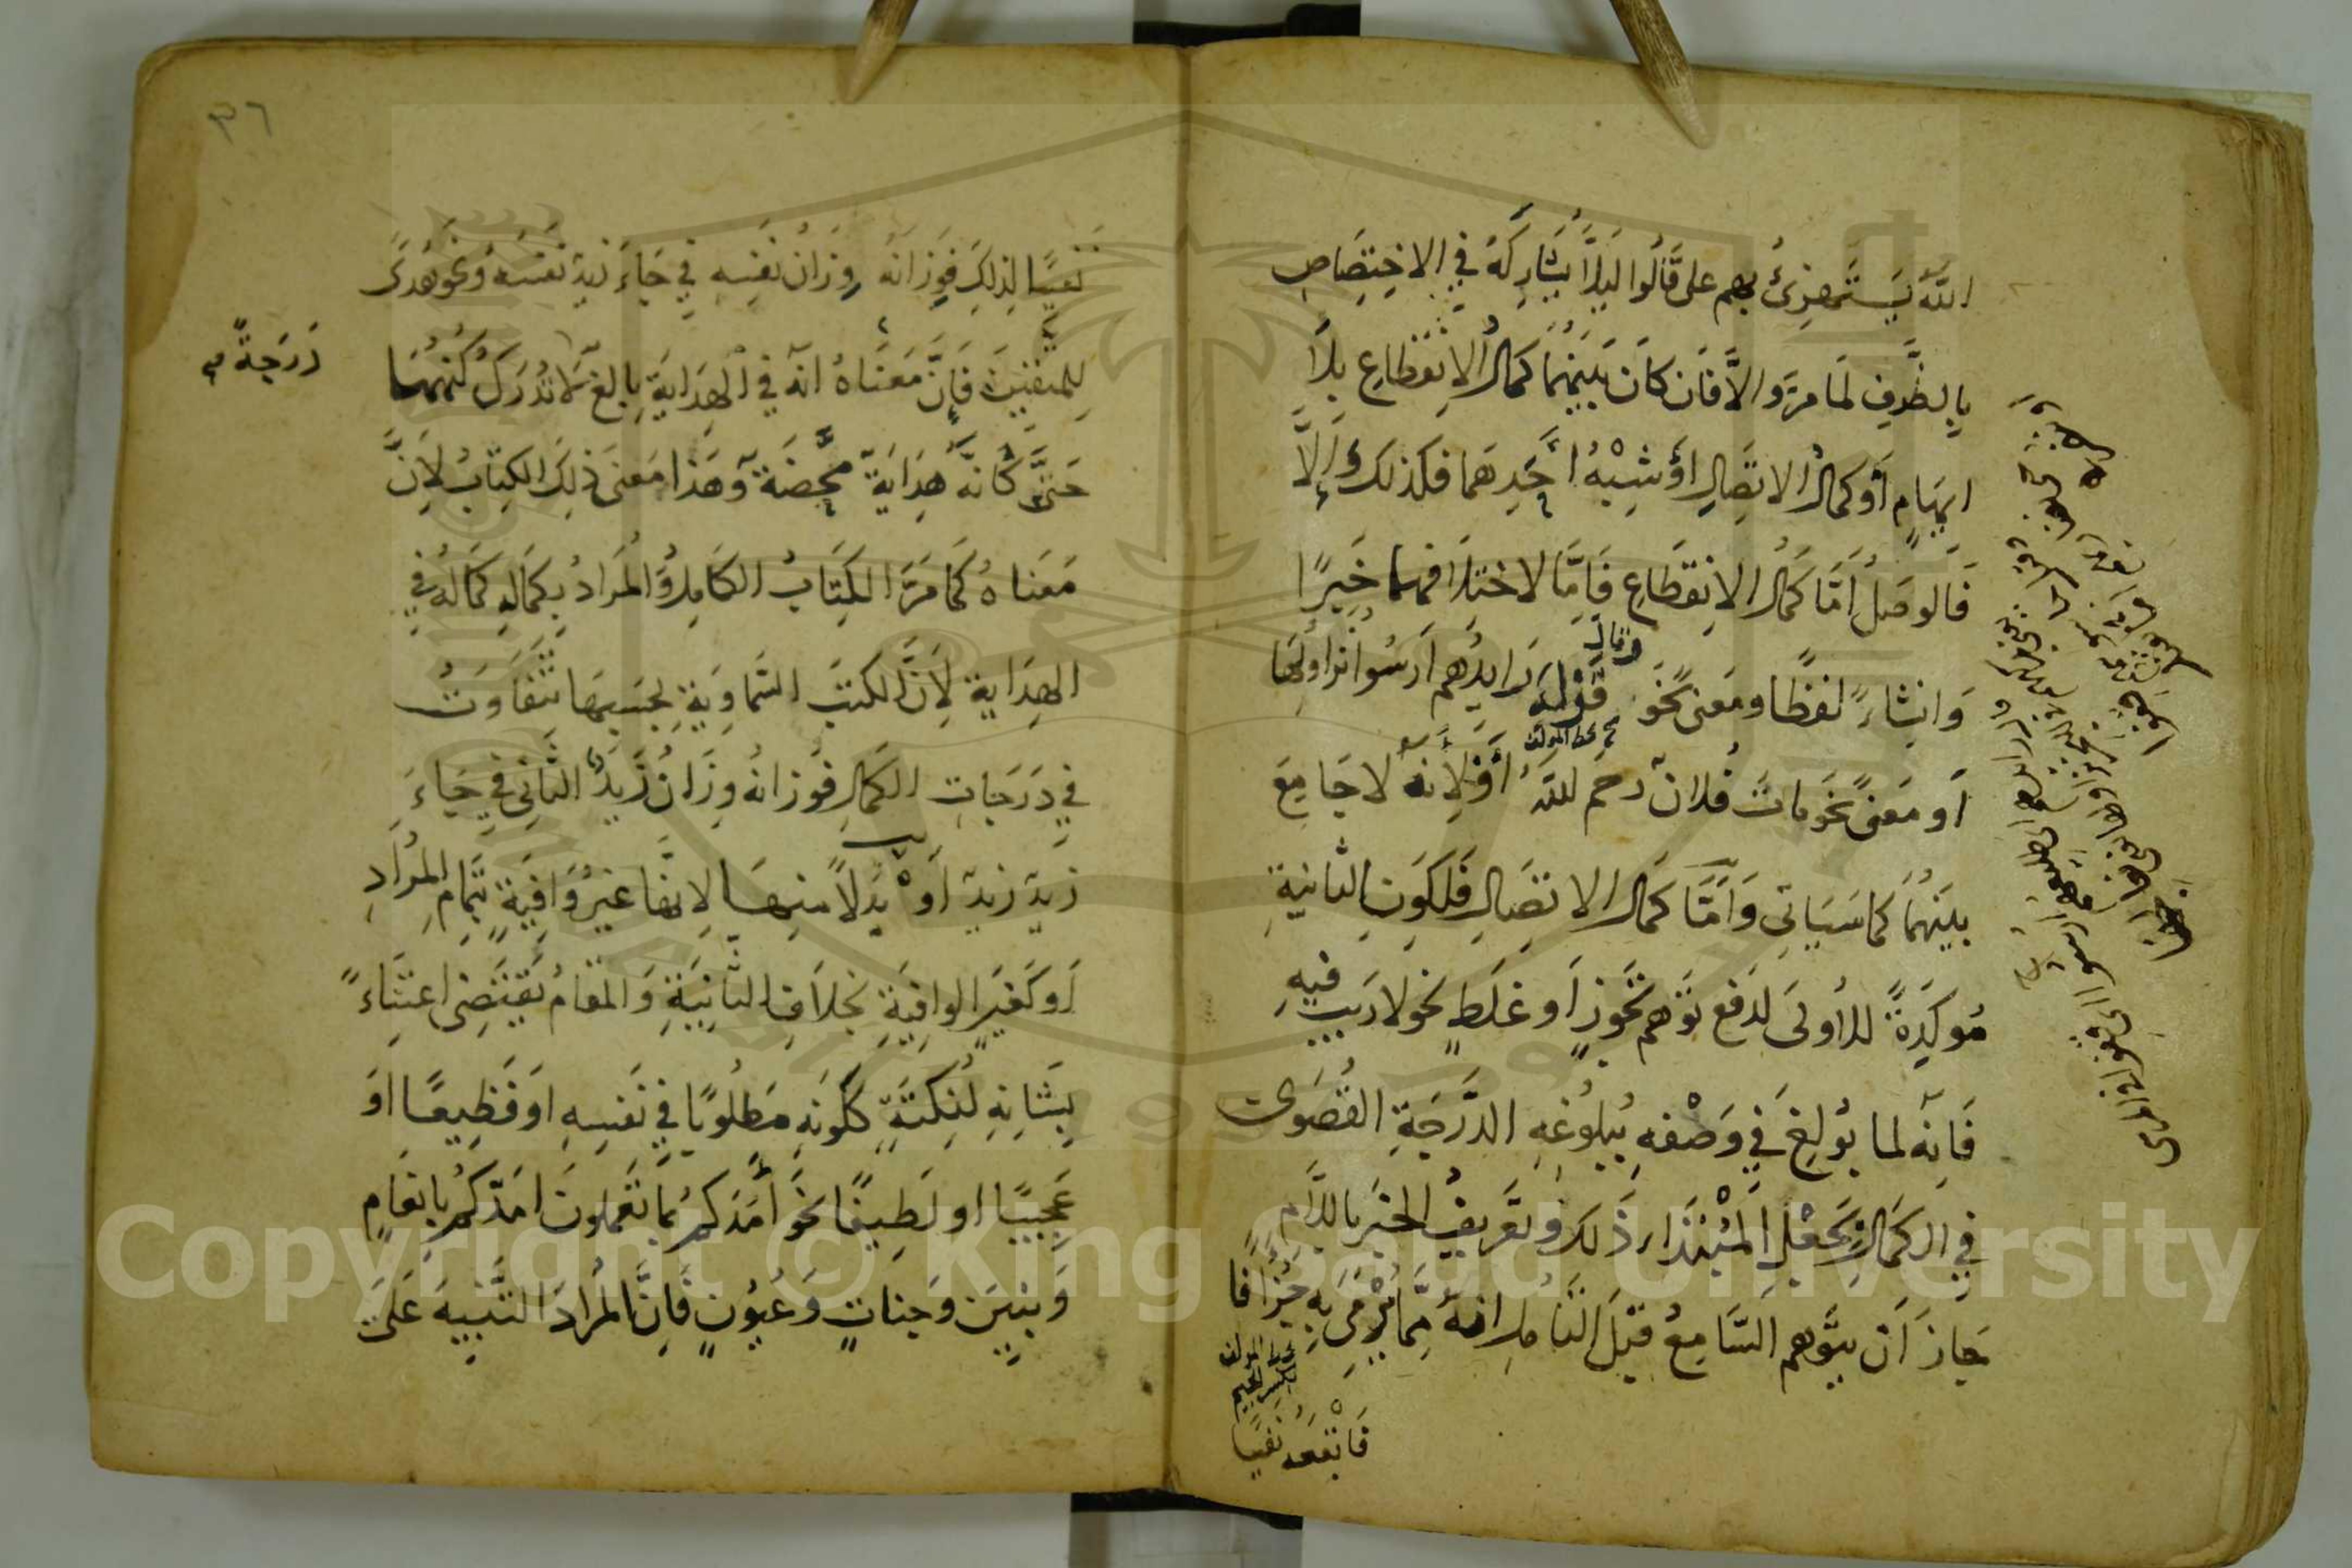 الله يستهزئ بهم على قالوا ليلا يشاركه في الاختصاص
بالظرف لما مر والا فان كان بينهما كمال الانقطاع بلا
ايهام أو كمال الاتصال أو شبه أحدهما فكذلك وإلا
فالوصل أما كمال الانقطاع فاما لاختلافهما خبرًا
وانشاءً لفظًا ومعنى نحو وقال رايدهم ارسوا نزاولها
قوله
صح بخط المؤلف
أو معنى نحو مات فلان رحمه الله أو لأنه لا جامع
بينهما كما سياتي وأما كمال الاتصال فلكون الثانية
مؤكدة للأولى لدفع توهم تجوز أو غلط نحو لا ريب فيه
فانه لما بولغ في وصفه ببلوغه الدرجة القصوى
في الكمال بجعل المبتدا ذلك وتعريف الخبر باللام
جاز أن يتوهم السامع قبل التامل انه مما يرمى به جزافًا
بخط المؤلف
بكسر الجيم
فاتبعه نفيًا
٣٦
نفيًا لذلك فوزانه وزان نفسه في جاء زيد نفسه ونحو هدى
للمتقين فإن معناه انه في الهداية بالغ لا تدرك كنهها
درجة
حتى كانه هداية محضة وهذا معنى ذلك الكتاب لأن
معناه كما مر الكتاب الكامل والمراد بكماله كماله في
الهداية لأن الكتب السماوية بحسبها تتفاوت
في درجات الكمال فوزانه وزان زيد الثاني في جاء
زيد زيد أو بدلاً منها لانها غير وافية بتمام المراد
أو كغير الوافية بخلاف الثانية والمقام يقتضى اعتناءً
بشانه لنكتة ككونه مطلوبًا في نفسه او فظيعًا او
عجيبًا او لطيفًا نحو أمدكم بما تعملون امدكم بانعام
وبنين وجنات وعيون فان المراد التنبيه على
Copyright © King Saud University